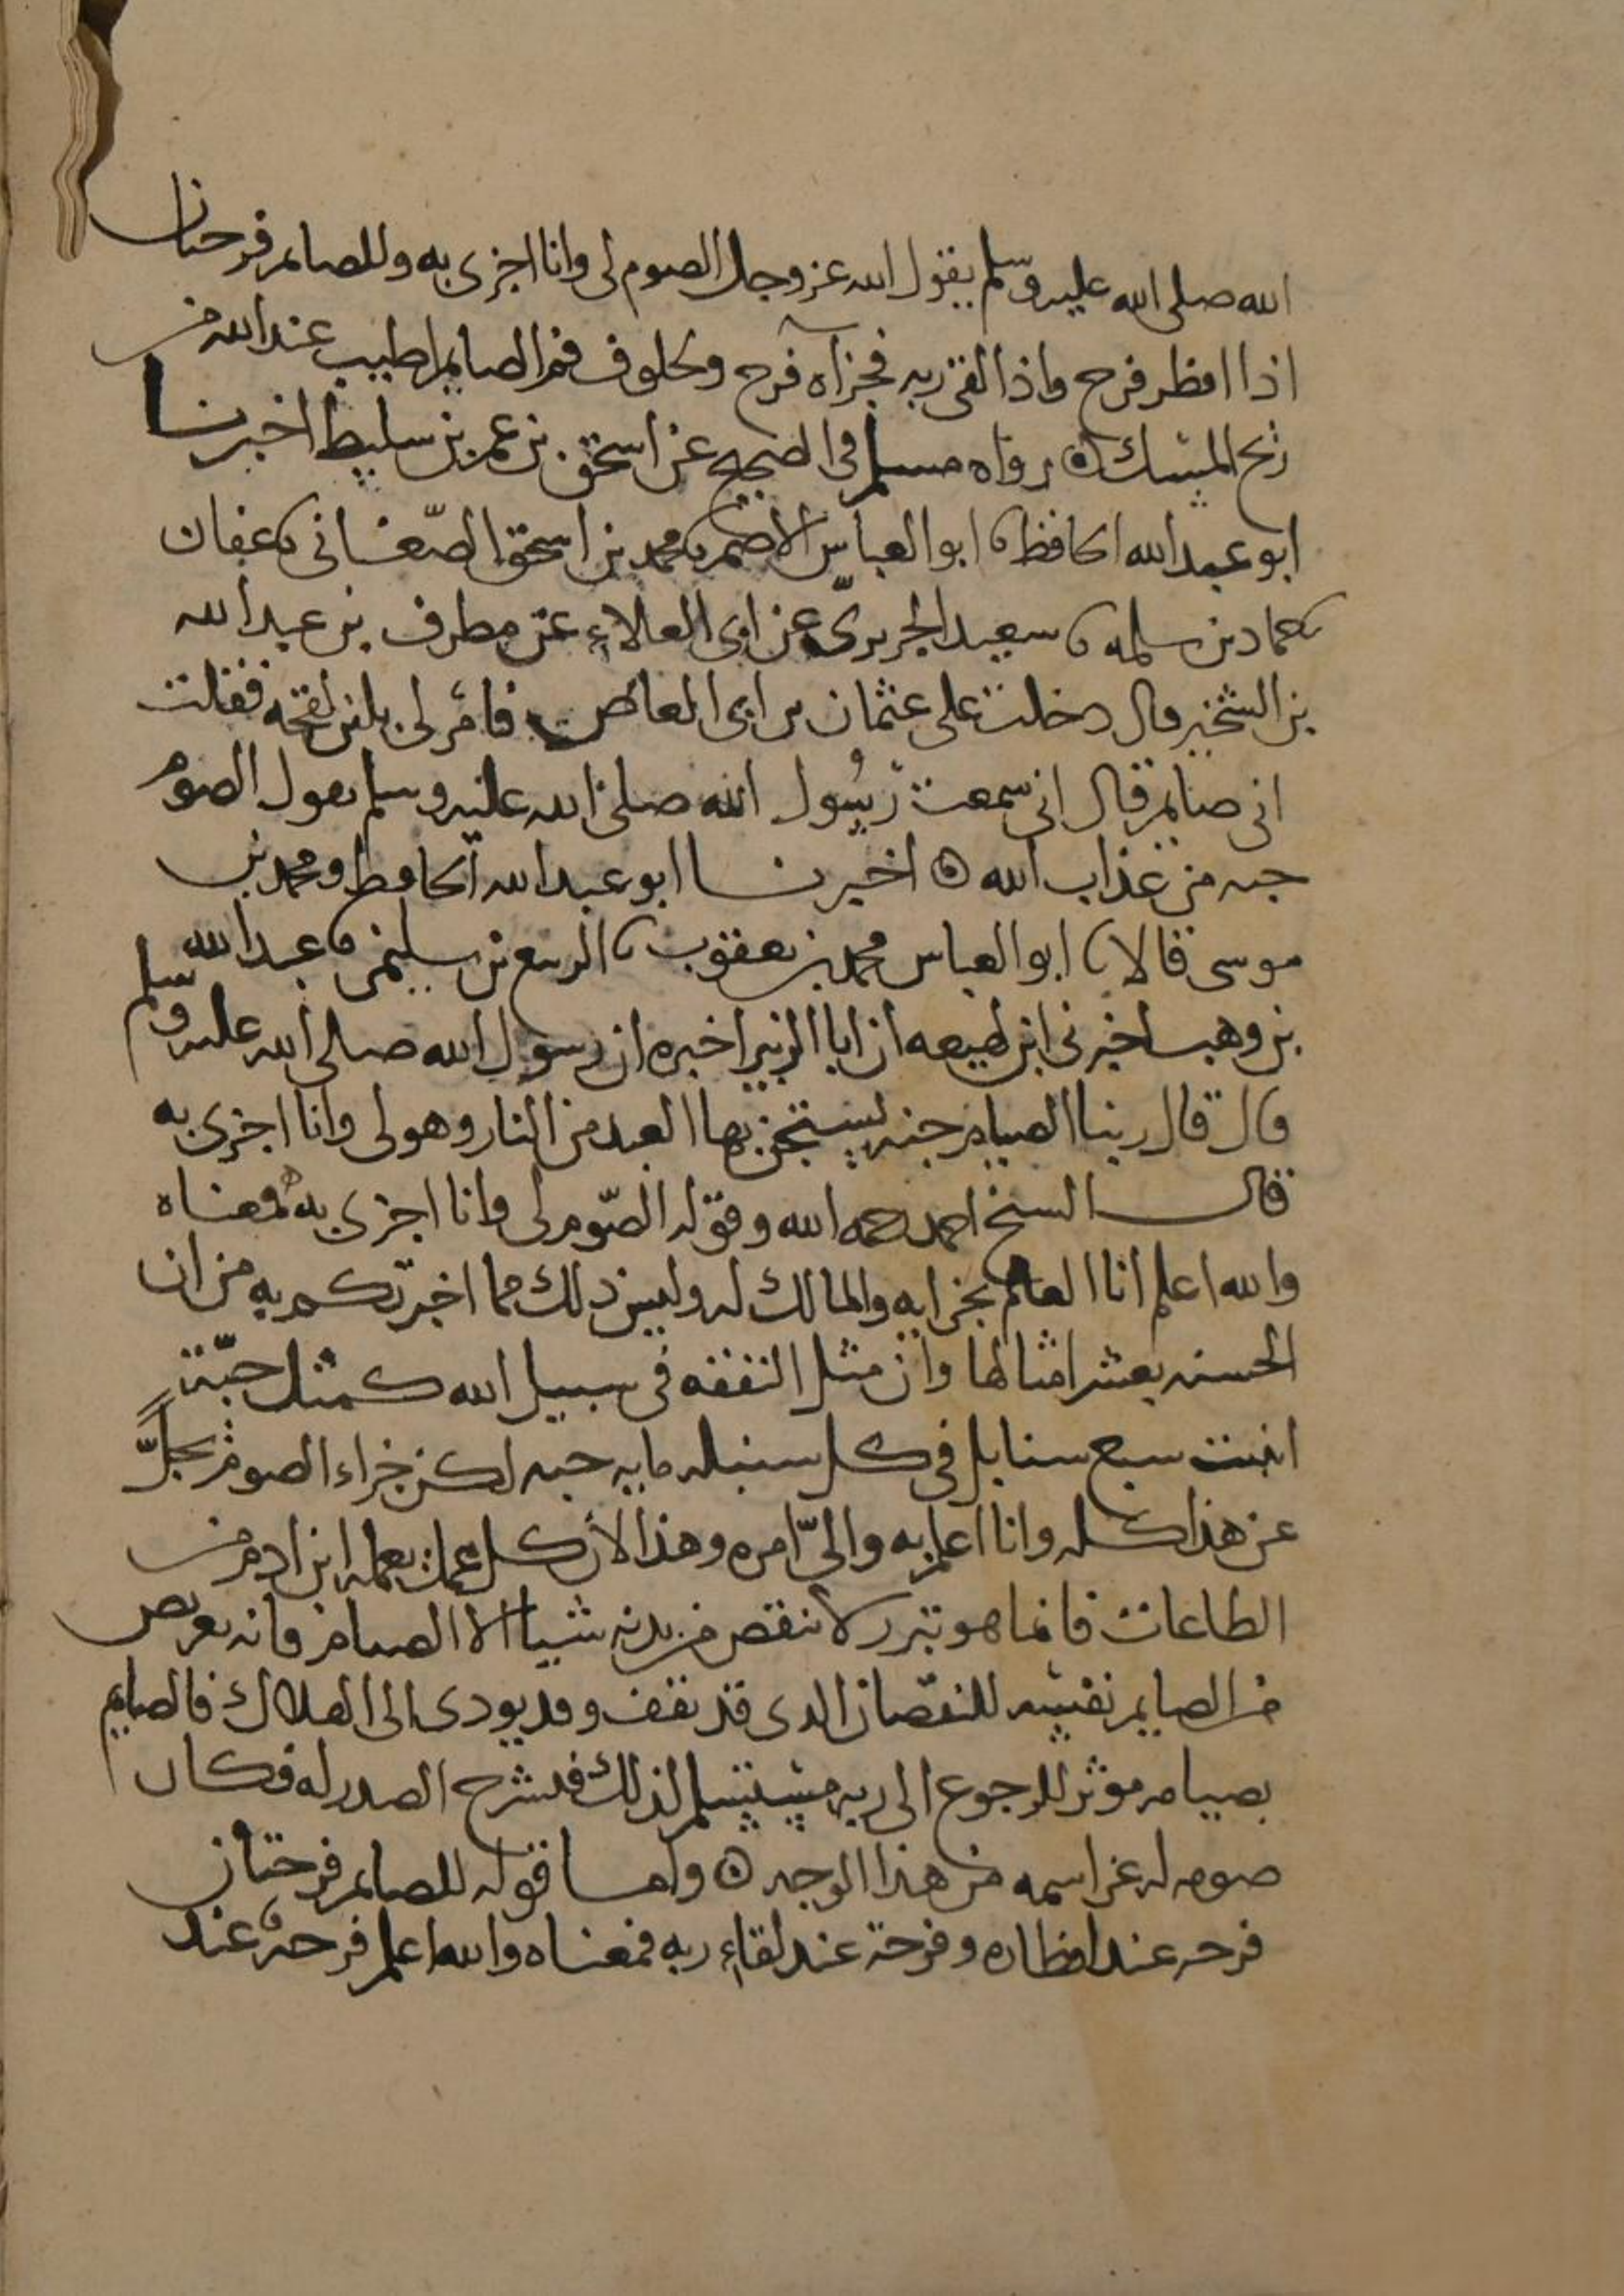 الله صلى الله عليه وسلم يقول الله عز وجل الصوم لى وانا اجزى به وللصايم فرحتان
اذا افطر فرح واذا لقى ربه فجزاه فرح ولخلوف فم الصايم اطيب عند الله من
ريح المسك ۞ رواه مسلم فى الصحيح عن اسحق بن عمر بن سليط اخبرنا
ابو عبد الله الحافظ ابو العباس الاصم محمد بن اسحق الصّغانى عفان
حماد بن سلمه سعيد الجريرىّ عن ابى العلاء عن مطرف بن عبد الله
بن الشخير قال دخلت على عثمان بن ابى العاص فامر لى بلبن لقحه فقلت
انى صايم قال انى سمعت رسُول الله صلى الله عليه وسلم يقول الصوم
جنه من عذاب الله ۞ اخبرنا ابو عبد الله الحافظ ومحمد بن
موسى قالا ابو العباس محمد بن يعقوب الربيع بن سليمن عبد الله
بن وهب اخبرنى ابن لهيعه ان ابا الزبير اخبره ان رسول الله صلى الله عليه وسلم
قال قال ربنا الصيام جنه يستجن بها العبد من النار وهو لى وانا اجزى به
قال الشيخ احمد رحمه الله وقوله الصّوم لى وانا اجزى به فمعناه
والله اعلم انا العالم بجزايه والمالك له وليس ذلك مما اخبرتكم به من ان
الحسنه بعشر امثالها وان مثل النفقه فى سبيل الله كمثل حبّة
انبتت سبع سنابل فى كل سنبله مايه حبه لكن جزاء الصوم يجلّ
عن هذا كله وانا اعلم به والىّ امره وهذا لأن كل عمل يعمله ابن ادم من
الطاعات فانما هو تبرر لا ينقص من بدنه شيا الا الصيام فانه تعريض
من الصايم نفسه للنقصان الذى قد يقف وقد يودى الى الهلاك فالصايم
بصيامه موثر للرجوع الى ربه مستسلم لذلك منشرح الصدر له فكان
صومه له عز اسمه من هذا الوجه ۞ واما قوله للصايم فرحتان
فرحه عند افطاره وفرحة عند لقاء ربه فمعناه والله اعلم فرحة عند